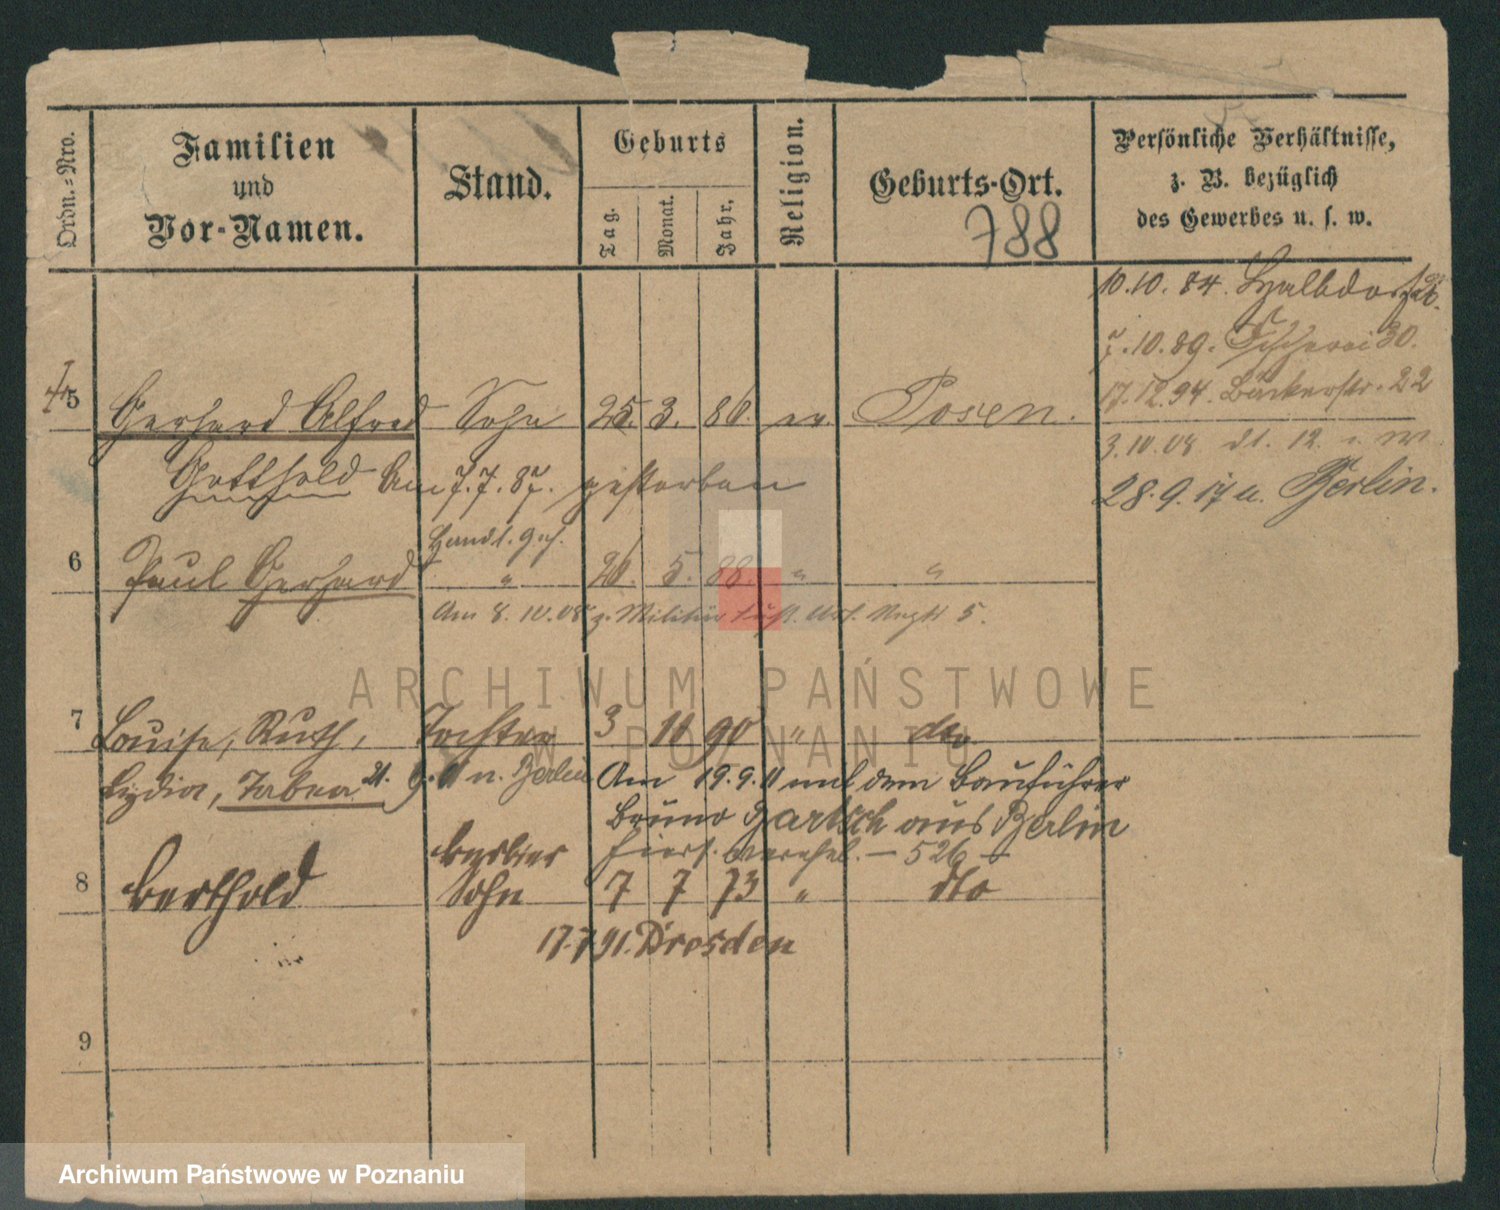 Ordn.-Nro.
Familien
und
Vor-Namen.
Stand.
Geburts
Tag.
Monat.
Jahr.
Religion.
Geburts-Ort.
788
Persönliche Verhältnisse,
z. B. bezüglich
des Gewerbes u. s. w.
10.10.84. Halbdorfstr.
7.10.89. Fischerei 30.
17.12.94. Bäckerstr. 22
3.10.08 dt. 12.
28.9.17 n. Berlin.
5 Gerhard Alfred Sohn 25. 3. 86. ev. Posen.
Gotthold Am 7.7.87. gestorben
Handl. Geh.
6 Paul Gerhard " 26. 5. 88. " "
Am 8.10.08 z. Militär Fußt. Art. Regt 5.
7 Louise, Ruth, Tochter 3 11 90 " dto
Lydia, Tabea 21. 9. 11 n. Berlin Am 19.9.11 mit dem Bauführer
Bruno Bartsch aus Berlin
hiers. verehel. — 526 —
8 Berthold Sohn 7 7 73 " dto
17.7.91. Dresden
9
ARCHIWUM PAŃSTWOWE
W POZNANIU
Archiwum Państwowe w Poznaniu